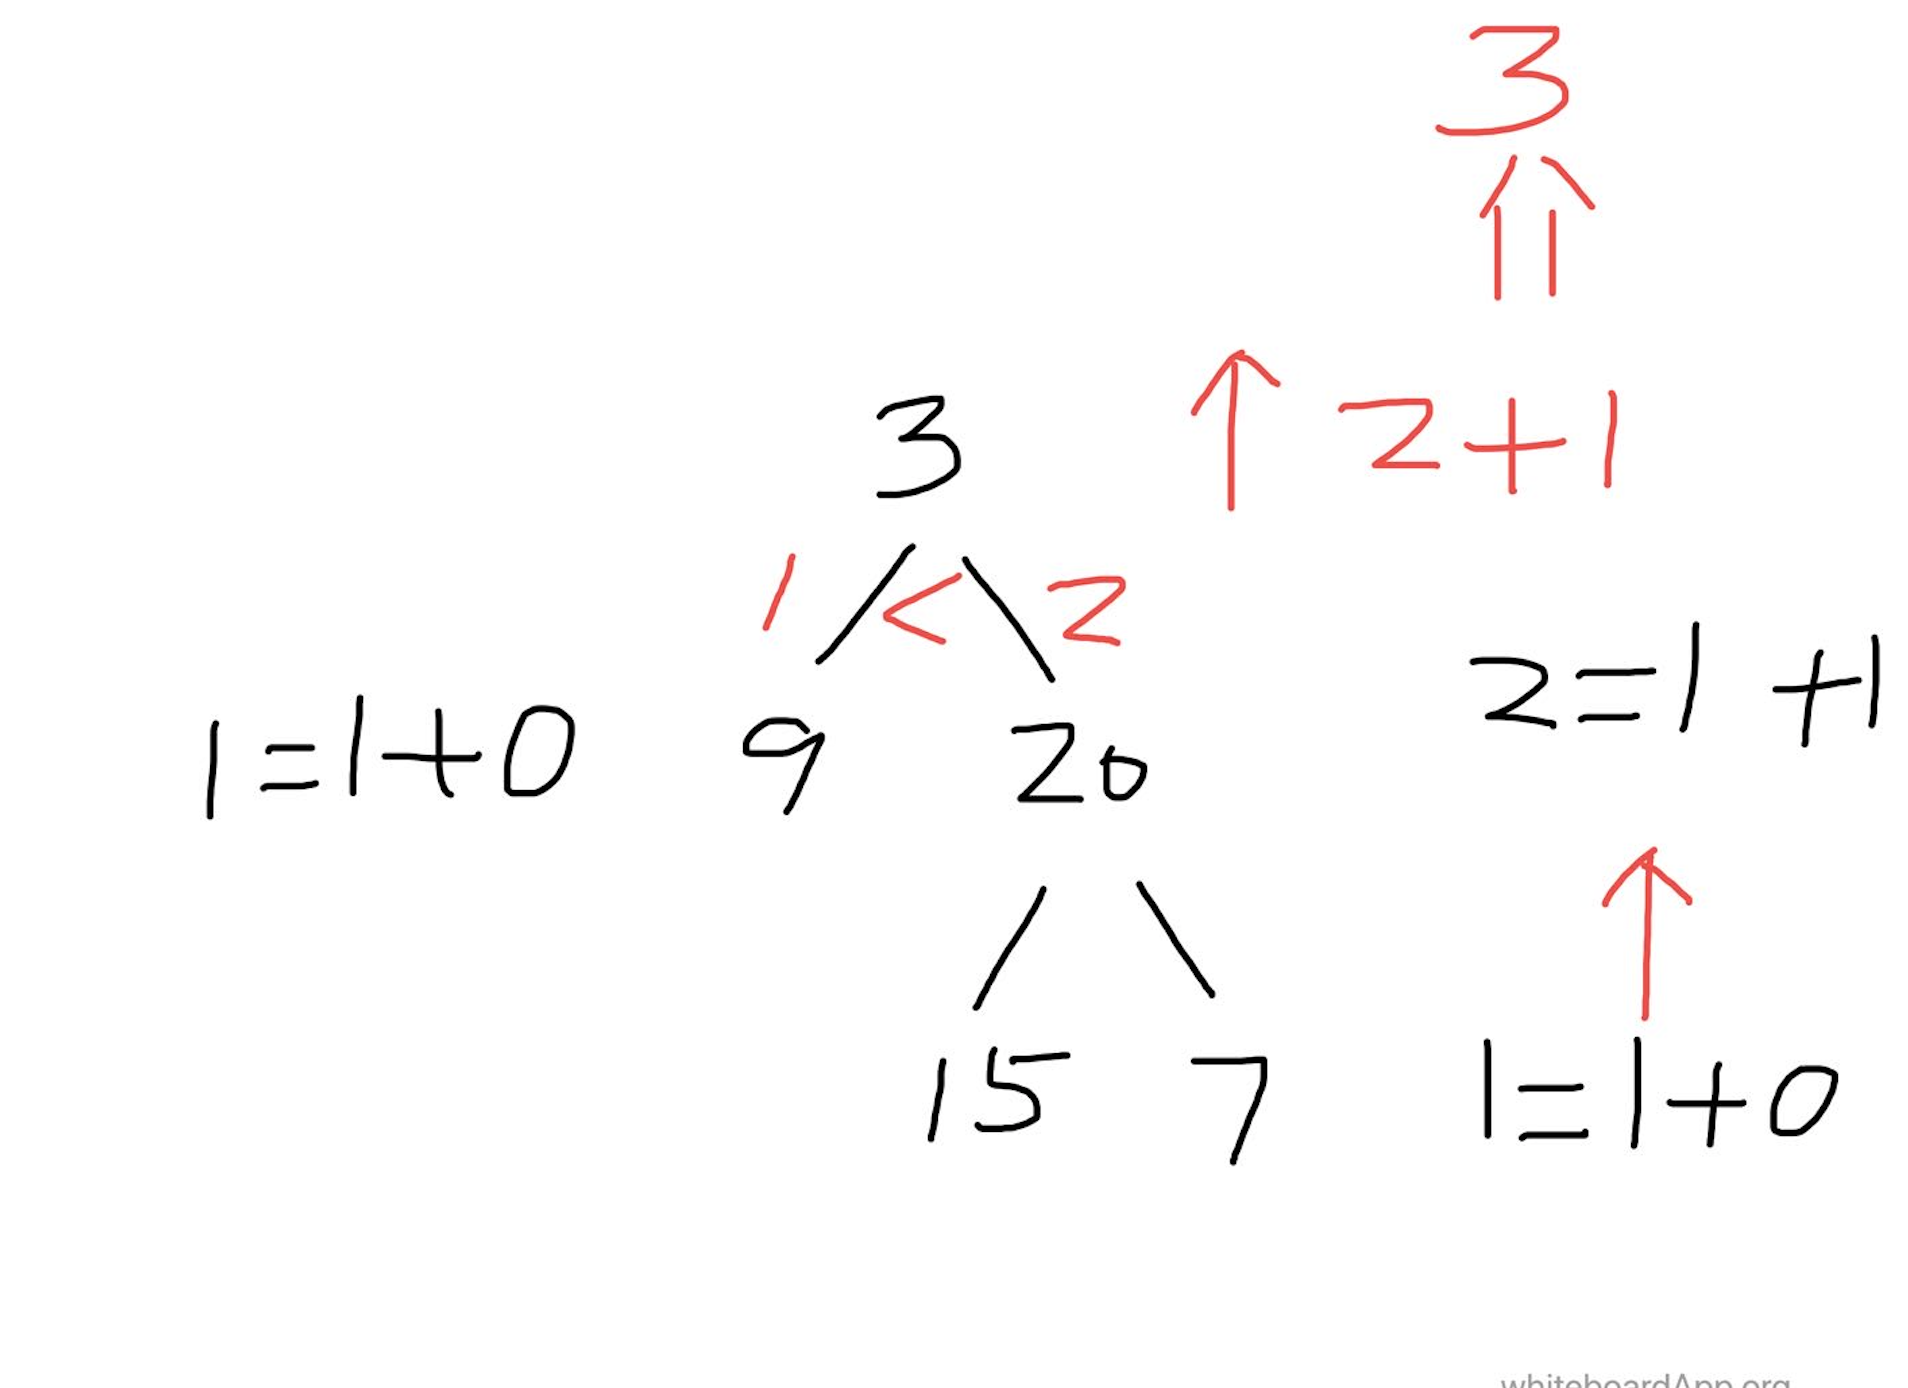 3
2+1
3
1 < 2
2=1+1
1=1+0 9 20
15 7 1=1+0
whiteboardApp.org